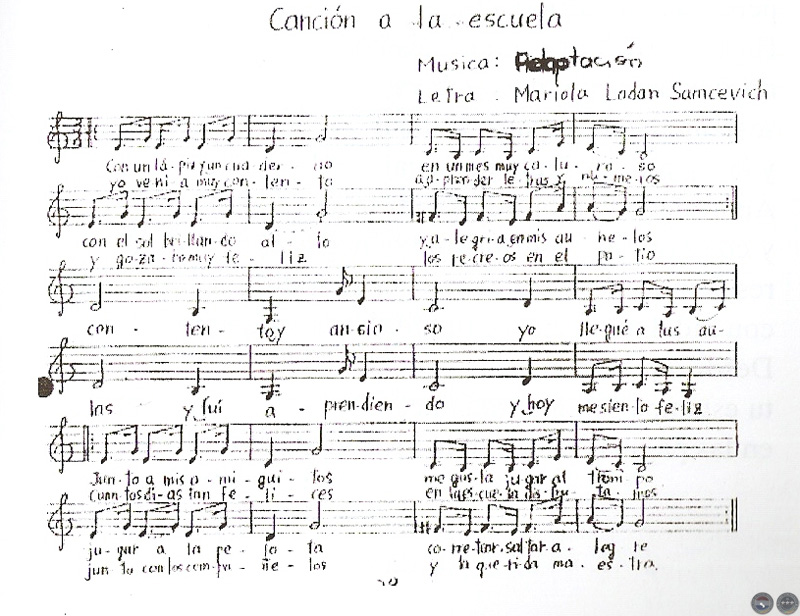 Canción a la escuela
Musica: Adaptación
Letra : Mariola Lodan Samcevich
Con un lá-piz y un cua-der-no en un mes muy ca-lu-ro-so
yo ve-ní a muy con-ten-to a a-pren-der le-tras y nú-me-ros
con el sol bri-llan-do al-to y a-le-gri-a en mis an-he-los
y go-za-ba muy fe-liz los re-cre-os en el pa-tio
con-ten-toy an-cio-so yo lle-gué a tus au-
las y fuí a-pren-dien-do y hoy me sien-to fe-liz
Jun-to a mis a-mi-gui-tos me gus-ta jugar al tiem-po
Cuan-tos di-as tan fe-li-ces en la es-cue-la dis-fru-ta-mos
ju-gar a la pe-lo-ta co-rre-tear, saltar a-leg re
jun to con los com-pa-ñe-ros y la que-ri-da ma-es-tra.